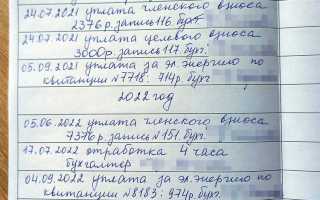 24.07.2021 уплата членского взноса
2376р. запись 116. бухг.
24.07.2021 уплата целевого взноса
3000р. запись 117. бухг.
05.09.2021 уплата за эл. энергию по
квитанции №7718: 714р. бухг.
2022 год
05.06.2022 уплата членского взноса
7376р. запись №151. бухг.
17.07.2022 отработка 4 часа
бухгалтер
04.09.2022 уплата за эл. энергию по
квитанции №8183: 974р. бухг.